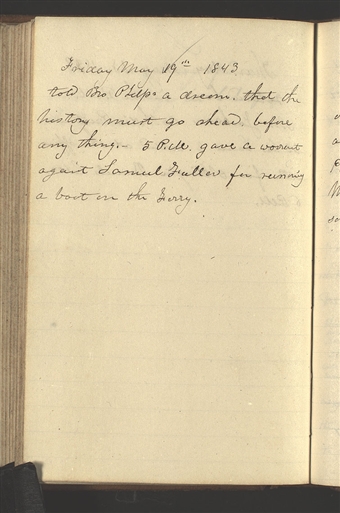 Friday May 19th 1843
told Bro Phelps a dream. that the
history must go ahead before
any thing.- 5 P.M. gave a warrant
against Samuel Fuller for running
a boat on the Ferry.